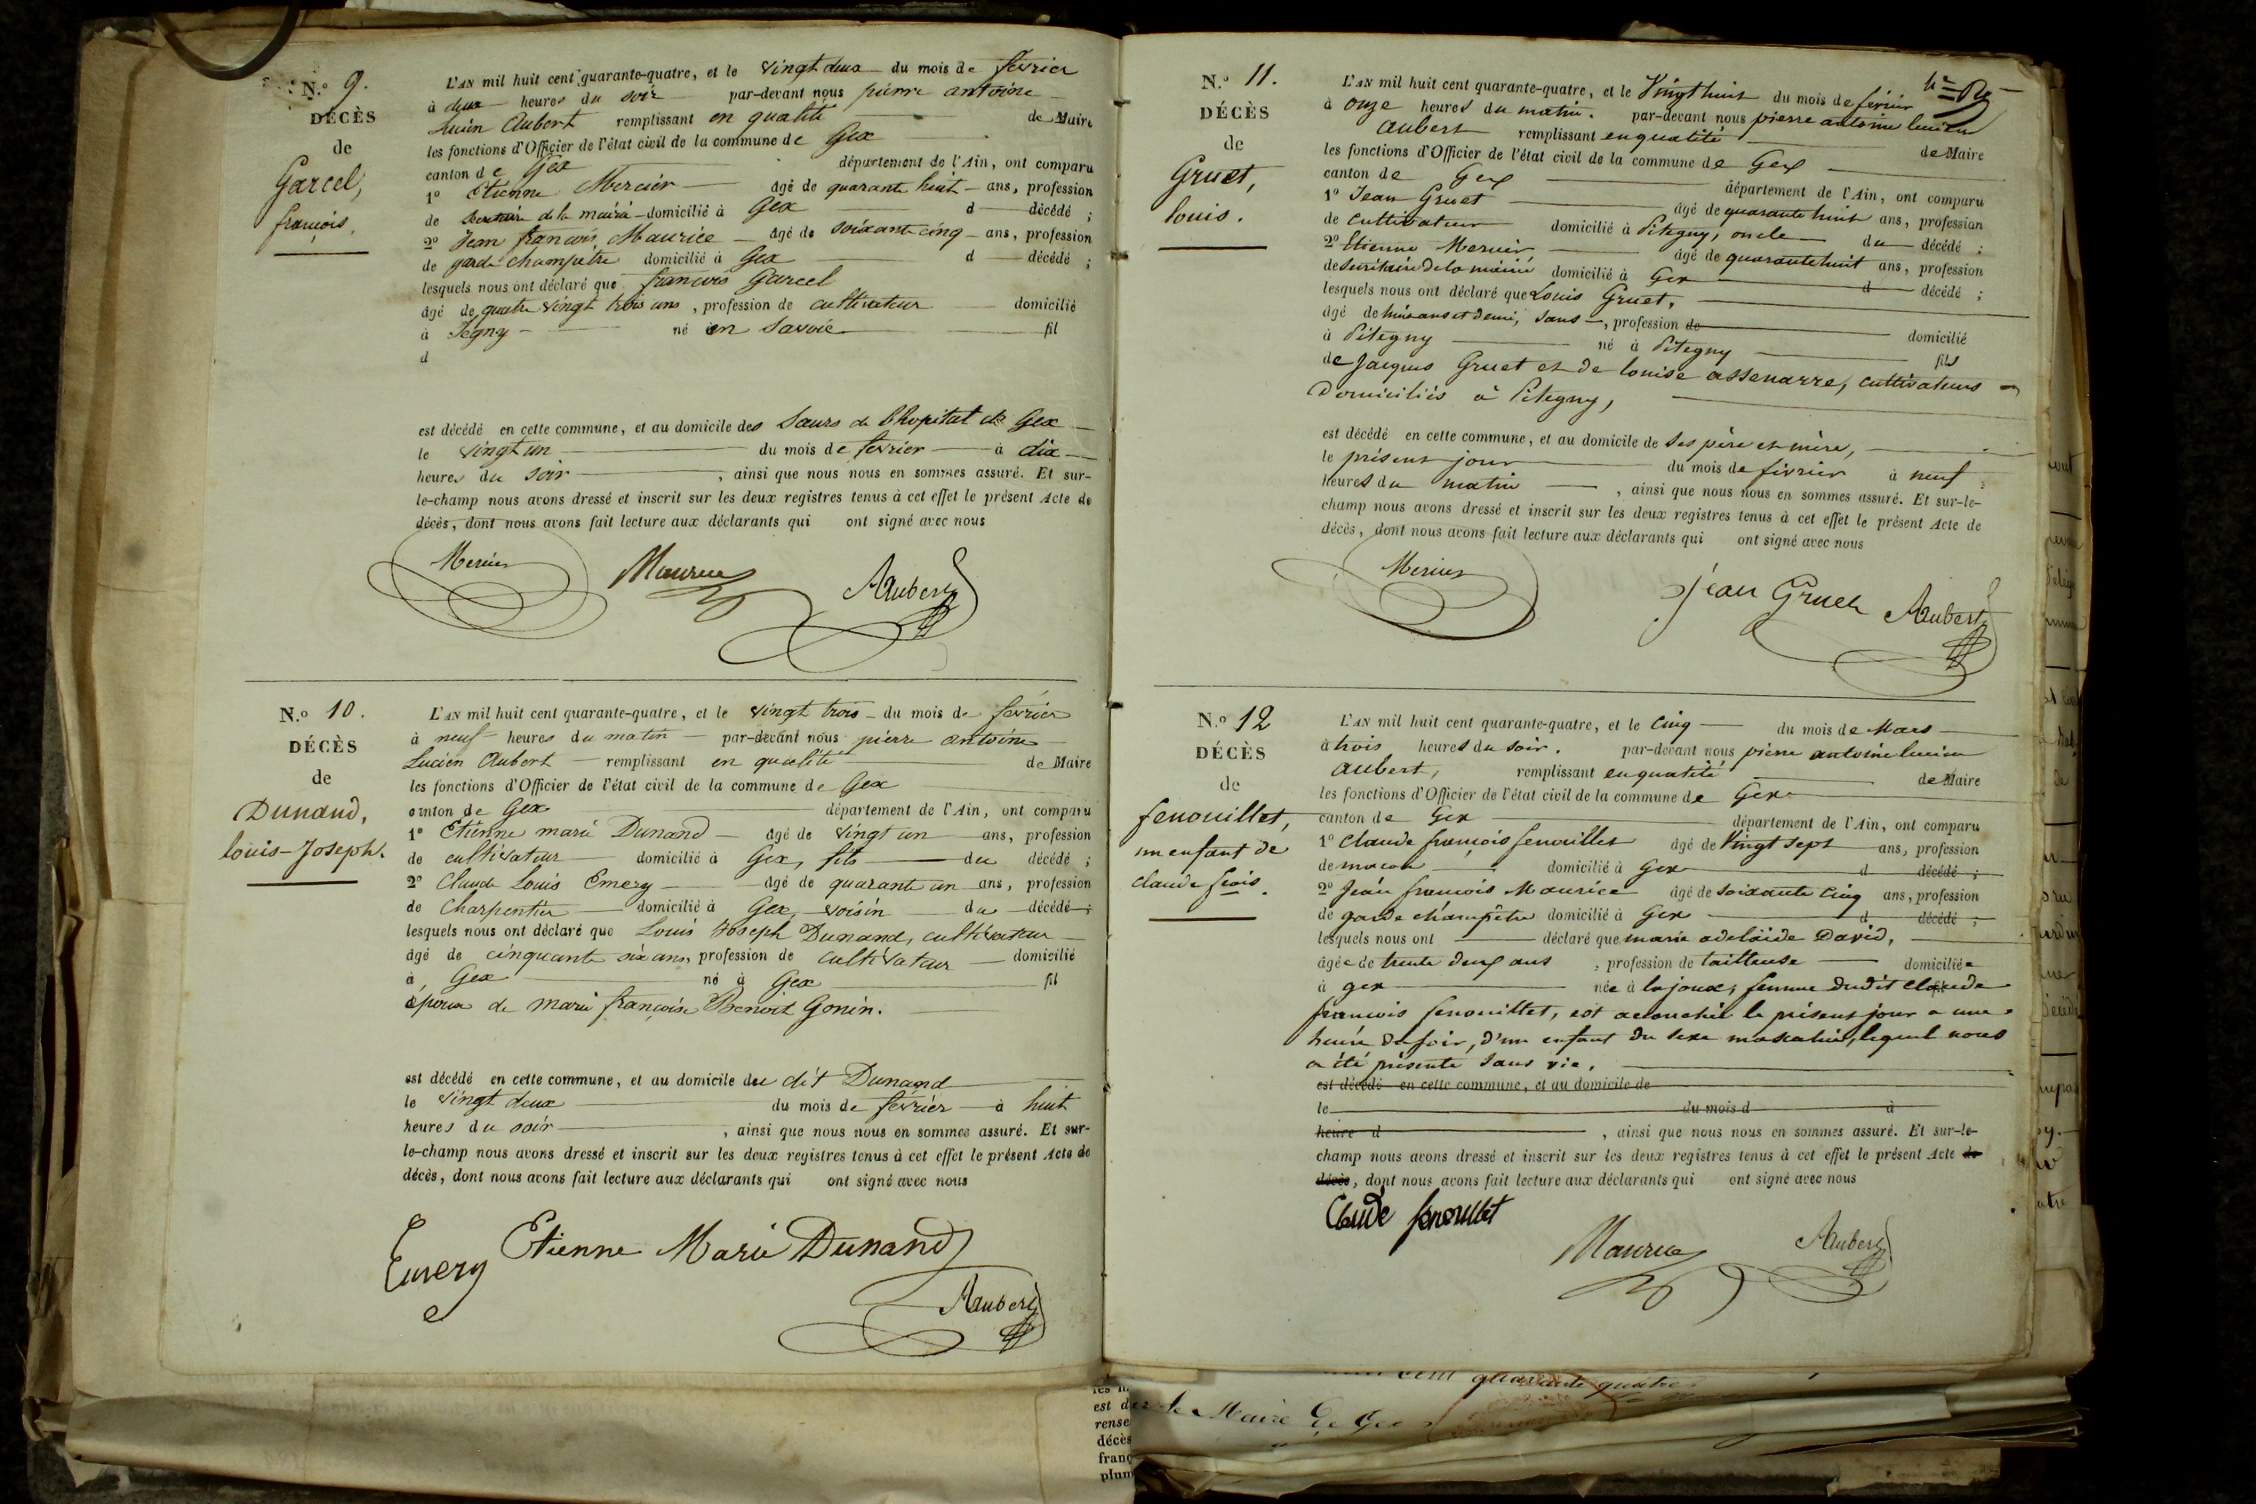 N.º 9.
DÉCÈS
de
Garcel,
françois.
L'AN mil huit cent quarante-quatre, et le vingt deux du mois de février
à deux heures du soir par-devant nous pierre antoine
Lucien Aubert remplissant en qualité de Maire
les fonctions d'Officier de l'état civil de la commune de Gex
canton de Gex département de l'Ain, ont comparu
1º Etienne Mercier âgé de quarante huit ans, profession
de secrétaire de la mairie domicilié à Gex d décédé ;
2º Jean françois Maurice âgé de soixante cinq ans, profession
de garde champêtre domicilié à Gex d décédé ;
lesquels nous ont déclaré que françois Garcel
âgé de quatre vingt trois ans, profession de cultivateur domicilié
à Segny né en Savoie fil
d
est décédé en cette commune, et au domicile des Sœurs de l'hopital de Gex
le vingt un du mois de février à dix
heures du soir, ainsi que nous nous en sommes assuré. Et sur-
le-champ nous avons dressé et inscrit sur les deux registres tenus à cet effet le présent Acte de
décès, dont nous avons fait lecture aux déclarants qui ont signé avec nous
Mercier Maurice Aubert
N.º 10.
DÉCÈS
de
Dunand,
louis-Joseph.
L'AN mil huit cent quarante-quatre, et le vingt trois du mois de février
à neuf heures du matin par-devant nous pierre antoine
Lucien Aubert remplissant en qualité de Maire
les fonctions d'Officier de l'état civil de la commune de Gex
canton de Gex département de l'Ain, ont comparu
1º Etienne marie Dunand âgé de vingt un ans, profession
de cultivateur domicilié à Gex, fils du décédé ;
2º Claude Louis Emery âgé de quarante un ans, profession
de charpentier domicilié à Gex, voisin du décédé ;
lesquels nous ont déclaré que Louis Joseph Dunand, cultivateur
âgé de cinquante six ans, profession de cultivateur domicilié
à Gex né à Gex fil
époux de marie françoise Benoit Gonin.
est décédé en cette commune, et au domicile du dit Dunand
le vingt deux du mois de février à huit
heures du soir, ainsi que nous nous en sommes assuré. Et sur-
le-champ nous avons dressé et inscrit sur les deux registres tenus à cet effet le présent Acte de
décès, dont nous avons fait lecture aux déclarants qui ont signé avec nous
Emery Etienne Marie Dunand
Aubert
N.º 11.
DÉCÈS
de
Gruet,
louis.
L'AN mil huit cent quarante-quatre, et le Vingt huit du mois de février
à onze heures du matin. par-devant nous pierre antoine lucien
aubert remplissant en qualité de Maire
les fonctions d'Officier de l'état civil de la commune de Gex
canton de Gex département de l'Ain, ont comparu
1º Jean Gruet âgé de quarante huit ans, profession
de cultivateur domicilié à Pitegny, oncle du décédé ;
2º Etienne Mercier âgé de quarante huit ans, profession
de secrétaire de la mairie domicilié à Gex d décédé ;
lesquels nous ont déclaré que Louis Gruet,
âgé de huit ans et demi, sans, profession de domicilié
à Pitegny né à Pitegny fils
de Jacques Gruet et de louise assenarre, cultivateurs
Domiciliés à Pitegny,
est décédé en cette commune, et au domicile de ses père et mère,
le présent jour du mois de février à neuf
heures du matin, ainsi que nous nous en sommes assuré. Et sur-le-
champ nous avons dressé et inscrit sur les deux registres tenus à cet effet le présent Acte de
décès, dont nous avons fait lecture aux déclarants qui ont signé avec nous
Mercier jean Gruet Aubert
N.º 12
DÉCÈS
de
fenouillet,
un enfant de
claude frois.
L'AN mil huit cent quarante-quatre, et le cinq du mois de Mars
à trois heures du soir. par-devant nous pierre antoine lucien
aubert, remplissant en qualité de Maire
les fonctions d'Officier de l'état civil de la commune de Gex
canton de Gex département de l'Ain, ont comparu
1º claude françois fenouillet âgé de Vingt sept ans, profession
de macon domicilié à Gex d décédé ;
2º Jean francois Maurice âgé de soixante cinq ans, profession
de garde champêtre domicilié à Gex d décédé ;
lesquels nous ont déclaré que marie adelaïde David,
âgée de trente deux ans, profession de tailleuse domiciliée
à gex née à lajoux, femme dudit claude
francois fenouillet, est accouchée le présent jour a une
heure du soir, d'un enfant du sexe masculin, lequel nous
a été présenté sans vie.
est décédé en cette commune, et au domicile de
le du mois d à
heure d, ainsi que nous nous en sommes assuré. Et sur-le-
champ nous avons dressé et inscrit sur les deux registres tenus à cet effet le présent Acte de
décès, dont nous avons fait lecture aux déclarants qui ont signé avec nous
Claude fenouillet
Maurice Aubert
cent quarante quatre
le Maire de Gex
est d
rense
décès
franç
plum